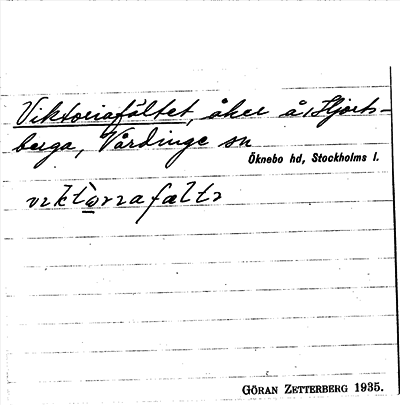 Viktoriafältet, åker å Hjorts-
berga, Vårdinge sn
Öknebo hd, Stockholms l.
GÖRAN ZETTERBERG 1935.